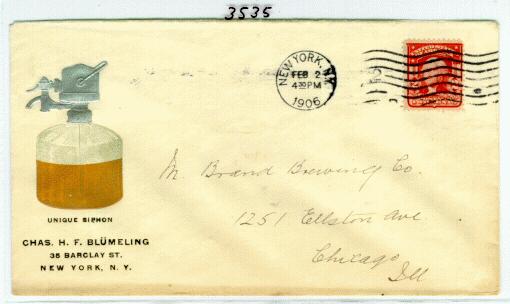 3535
NEW YORK, N.Y.
FEB 2
4 30 PM
1906
M. Brand Brewing Co.
1251 Ellston Ave.
Chicago
Ill
UNIQUE SIPHON
CHAS. H. F. BLÜMELING
35 BARCLAY ST.
NEW YORK, N. Y.